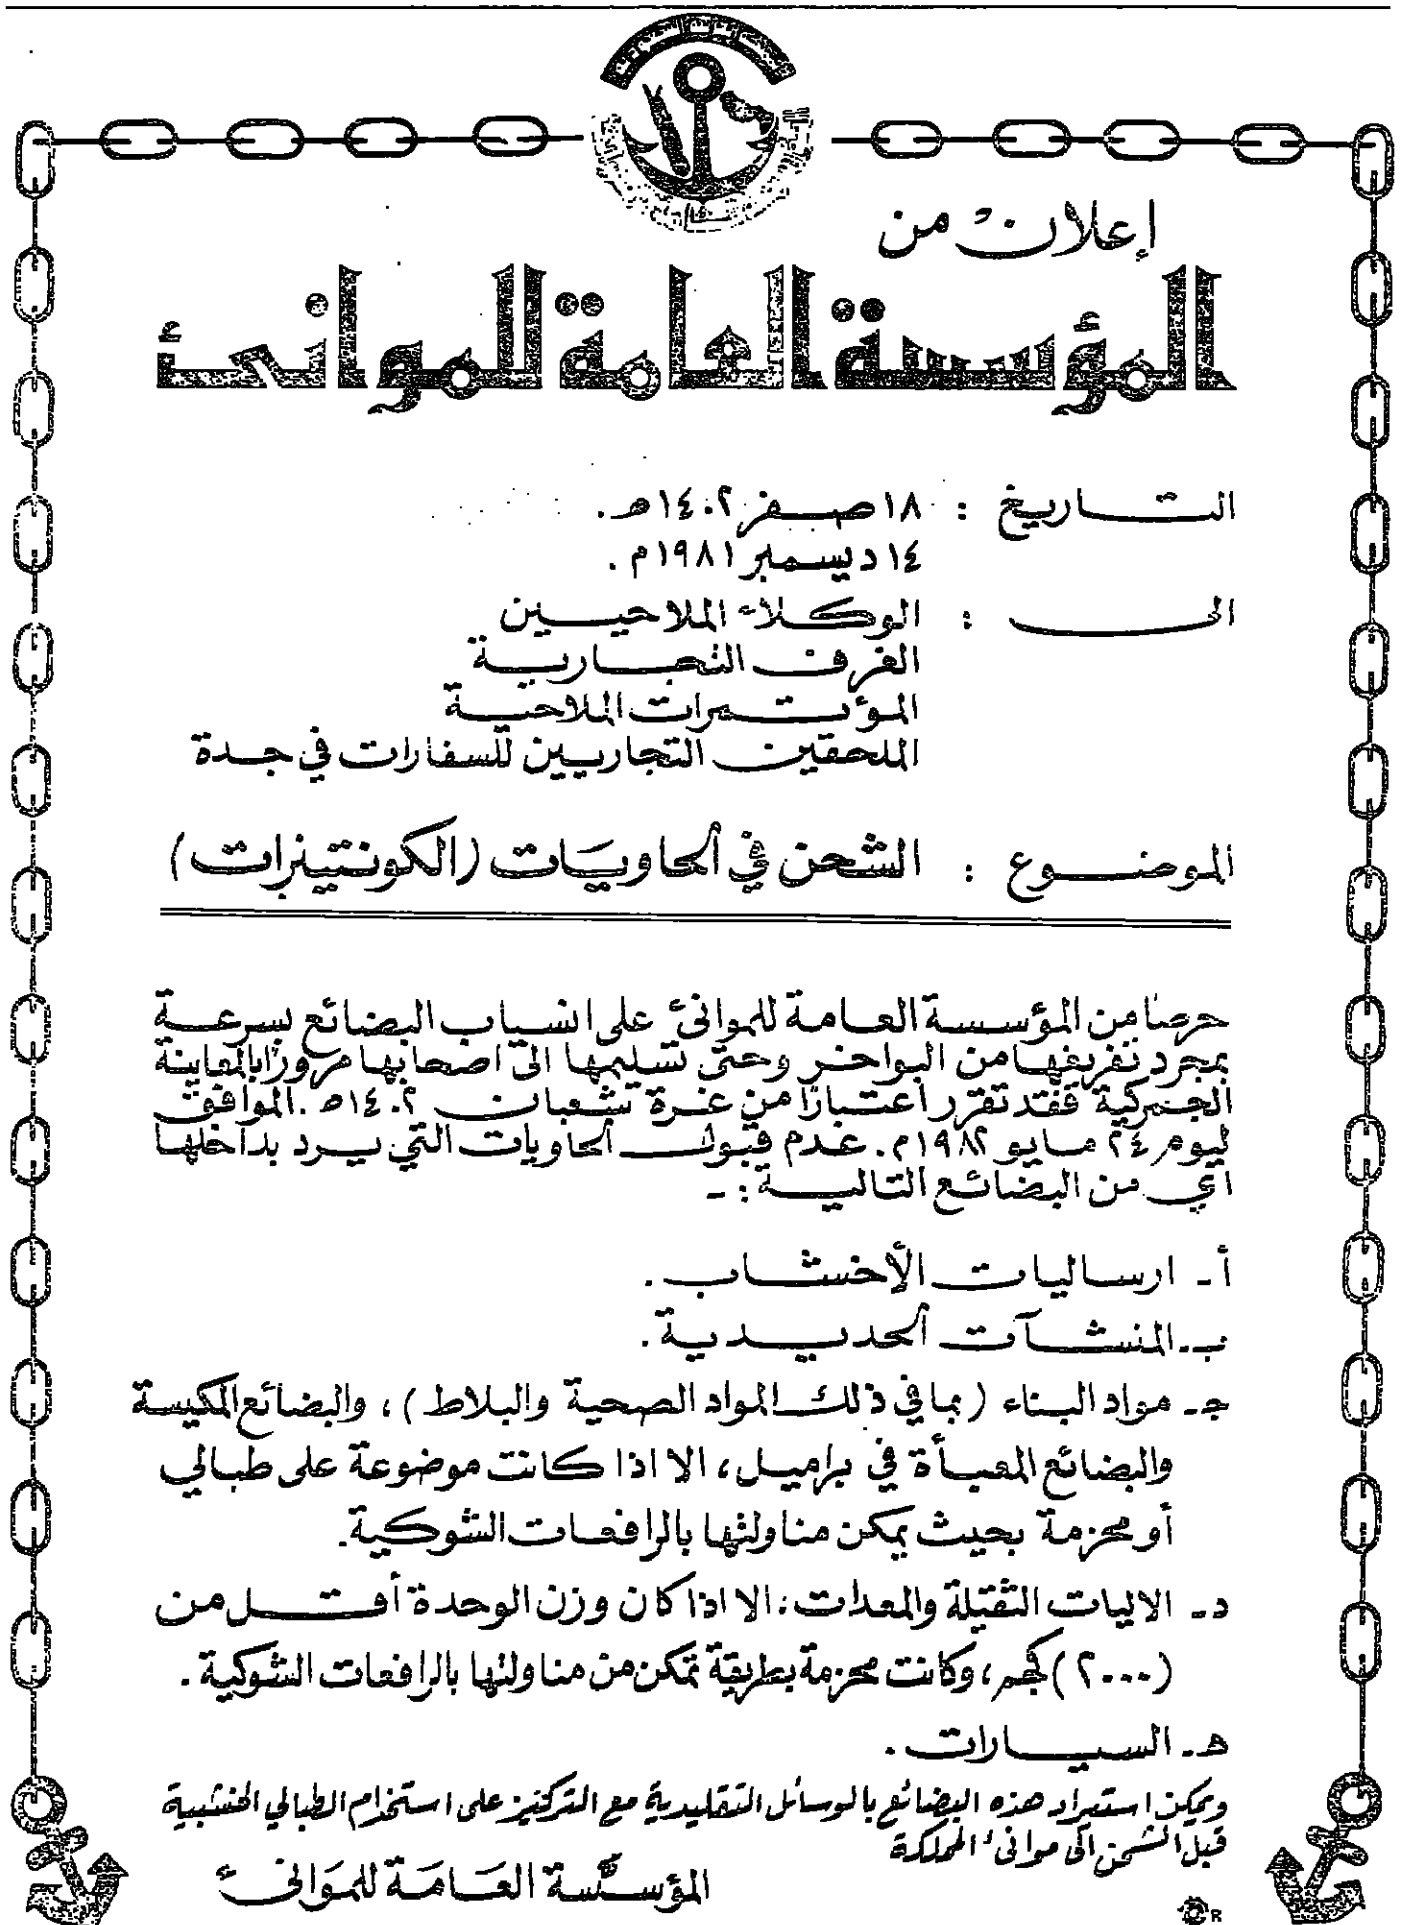 إعلان من
المؤسسة العامة للموانئ
التاريخ : ١٨ صفر ١٤٠٢ هـ .
١٤ ديسمبر ١٩٨١ م .
الى : الوكلاء الملاحيين
الغرف التجارية
المؤتمرات الملاحية
الملحقين التجاريين للسفارات في جدة
الموضوع : الشحن في الحاويات (الكونتينرات)
حرصا من المؤسسة العامة للموانئ على انسياب البضائع بسرعة
بمجرد تفريغها من البواخر وحتى تسليمها الى اصحابها مرورًا بالمعاينة
الجمركية فقد تقرر اعتبارًا من غرة شعبان ١٤٠٢ هـ . الموافق
ليوم ٢٤ مايو ١٩٨٢ م . عدم قبول الحاويات التي يرد بداخلها
أي من البضائع التالية : -
أ - ارساليات الأخشاب .
ب - المنشآت الحديدية .
جـ - مواد البناء ( بما في ذلك المواد الصحية والبلاط ) ، والبضائع المكيسة
والبضائع المعبأة في براميل ، الا اذا كانت موضوعة على طبالي
أو محزمة بحيث يمكن مناولتها بالرافعات الشوكية .
د - الاليات الثقيلة والمعدات : الا اذا كان وزن الوحدة أقل من
( ٢٠٠٠ ) كجم ، وكانت محزمة بطريقة تمكن من مناولتها بالرافعات الشوكية .
هـ - السيارات .
ويمكن استيراد هذه البضائع بالوسائل التقليدية مع التركيز على استخدام الطبالي الخشبية
قبل الشحن الى موانئ المملكة
المؤسسة العامة للموانئ